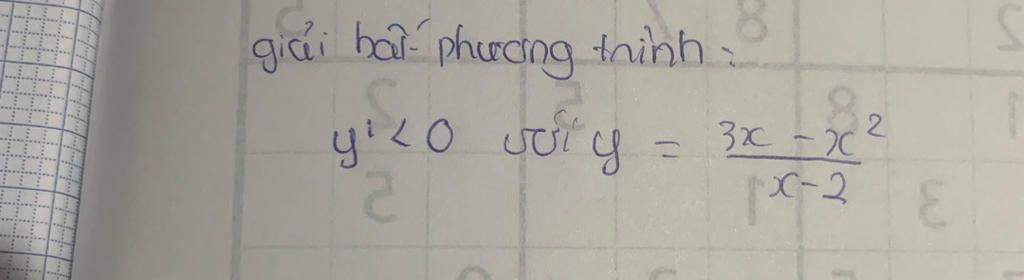 giải bất phương trình :
y' < 0 với y = \frac{3x - x^2}{x - 2}